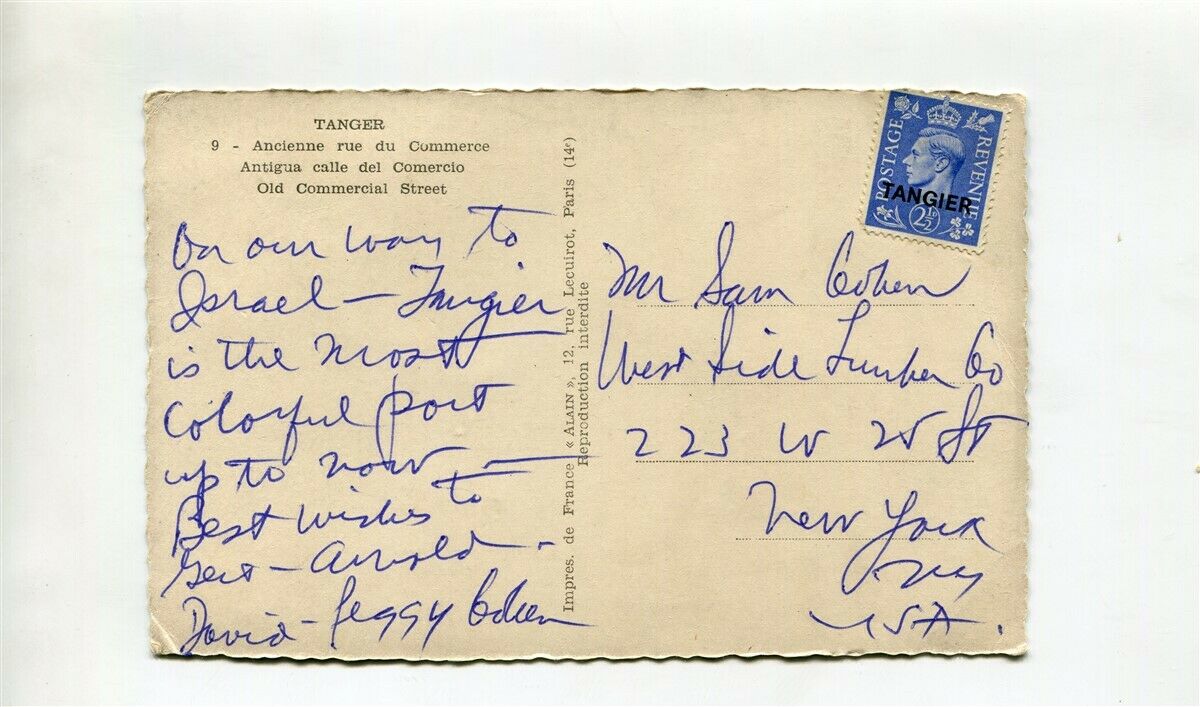 TANGER
9 - Ancienne rue du Commerce
Antigua calle del Comercio
Old Commercial Street
On our way to
Israel — Tangier
is the most
colorful port
up to now —
Best wishes to
Gert - Arnold -
David - Peggy Cohen
Impres. de France « ALAIN », 12, rue Lecuirot, Paris (14e)
Reproduction interdite
POSTAGE
REVENUE
TANGIER
2½D
Mr Sam Cohen
West Side Lumber Co
223 W 25 St
New York
NY
USA.